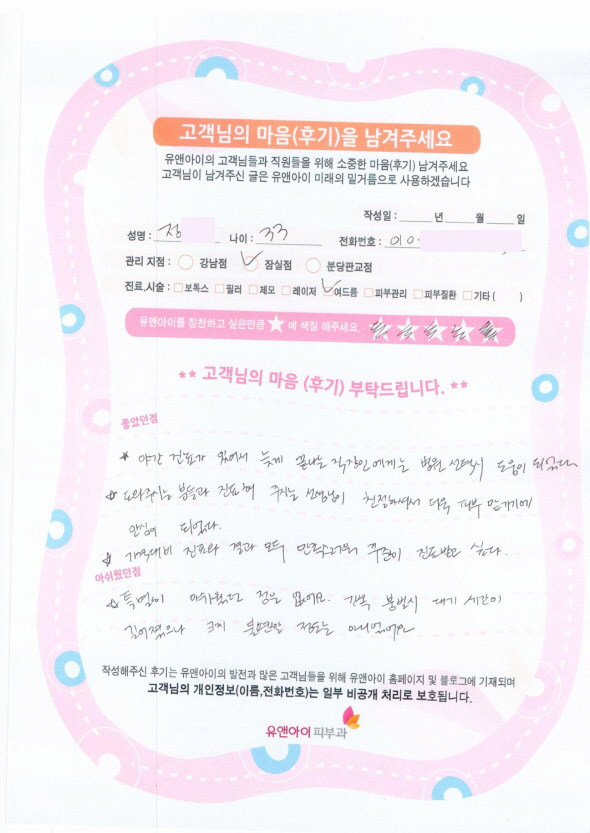 고객님의 마음(후기)을 남겨주세요
유앤아이의 고객님들과 직원들을 위해 소중한 마음(후기) 남겨주세요
고객님이 남겨주신 글은 유앤아이 미래의 밑거름으로 사용하겠습니다
작성일 : 년 월 일
성명 : 정 나이 : 33 전화번호 : 010
관리 지점 : 강남점 잠실점 분당판교점
진료,시술 : 보톡스 필러 제모 레이저 여드름 피부관리 피부질환 기타 ( )
유앤아이를 칭찬하고 싶은만큼 ★ 에 색칠 해주세요.
** 고객님의 마음 (후기) 부탁드립니다. **
좋았던점
★ 야간 진료가 있어서 늦게 끝나는 직장인에게는 병원 선택시 도움이 되었다.
☆ 도와주시는 분들과 진료해 주시는 선생님이 친절하셔서 더욱 피부 맡기기에
안심이 되었다.
☆ 가격대비 진료와 결과 모두 만족스러워 꾸준히 진료받고 싶다.
아쉬웠던점
☆ 특별히 아쉬웠던 점은 없어요. 간혹 붐빌시 대기 시간이
길어졌으나 크게 불편할 정도는 아니었어요
작성해주신 후기는 유앤아이의 발전과 많은 고객님들을 위해 유앤아이 홈페이지 및 블로그에 기재되며
고객님의 개인정보(이름,전화번호)는 일부 비공개 처리로 보호됩니다.
유앤아이피부과